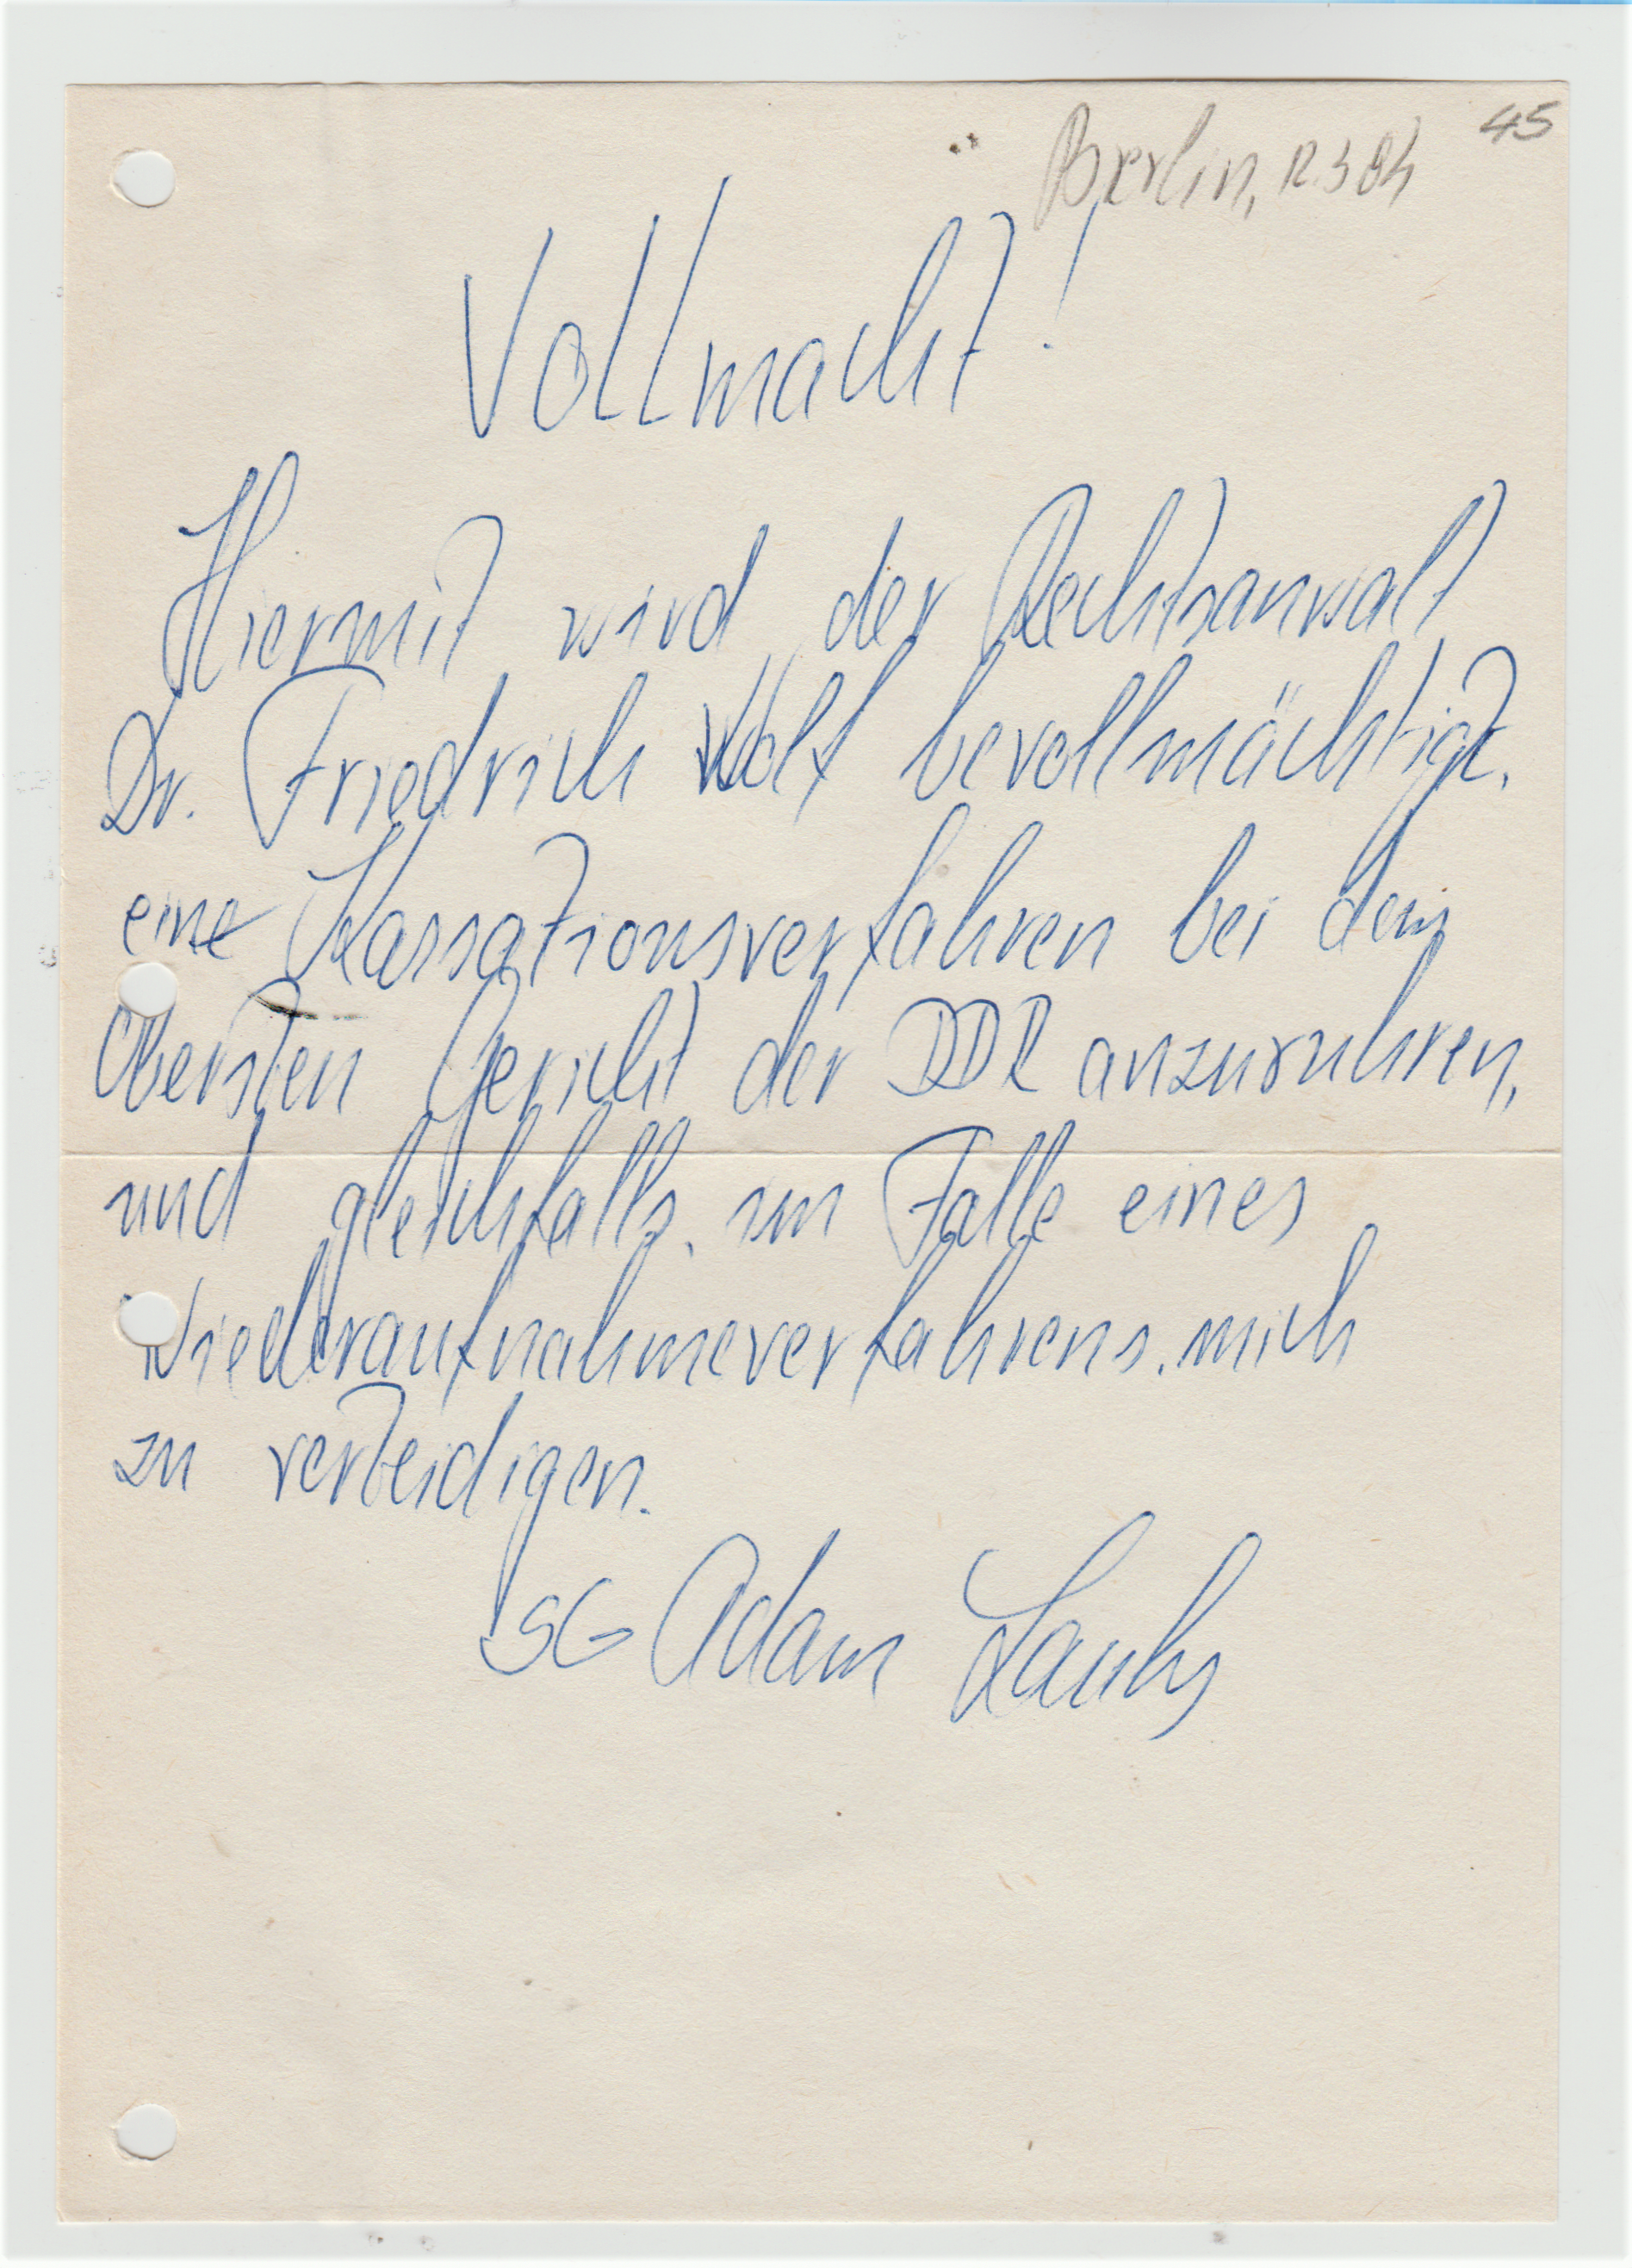 45
Berlin,
Vollmacht!
Hiermit wird der Rechtsanwalt
Dr. Friedrich Wolf bevollmächtigt,
ein Kassationsverfahren bei dem
Obersten Gericht der DDR anzuruhren,
und gleichfalls, im Falle eines
Wiederaufnahmeverfahrens, mich
zu verteidigen.
SG Adam Lauks